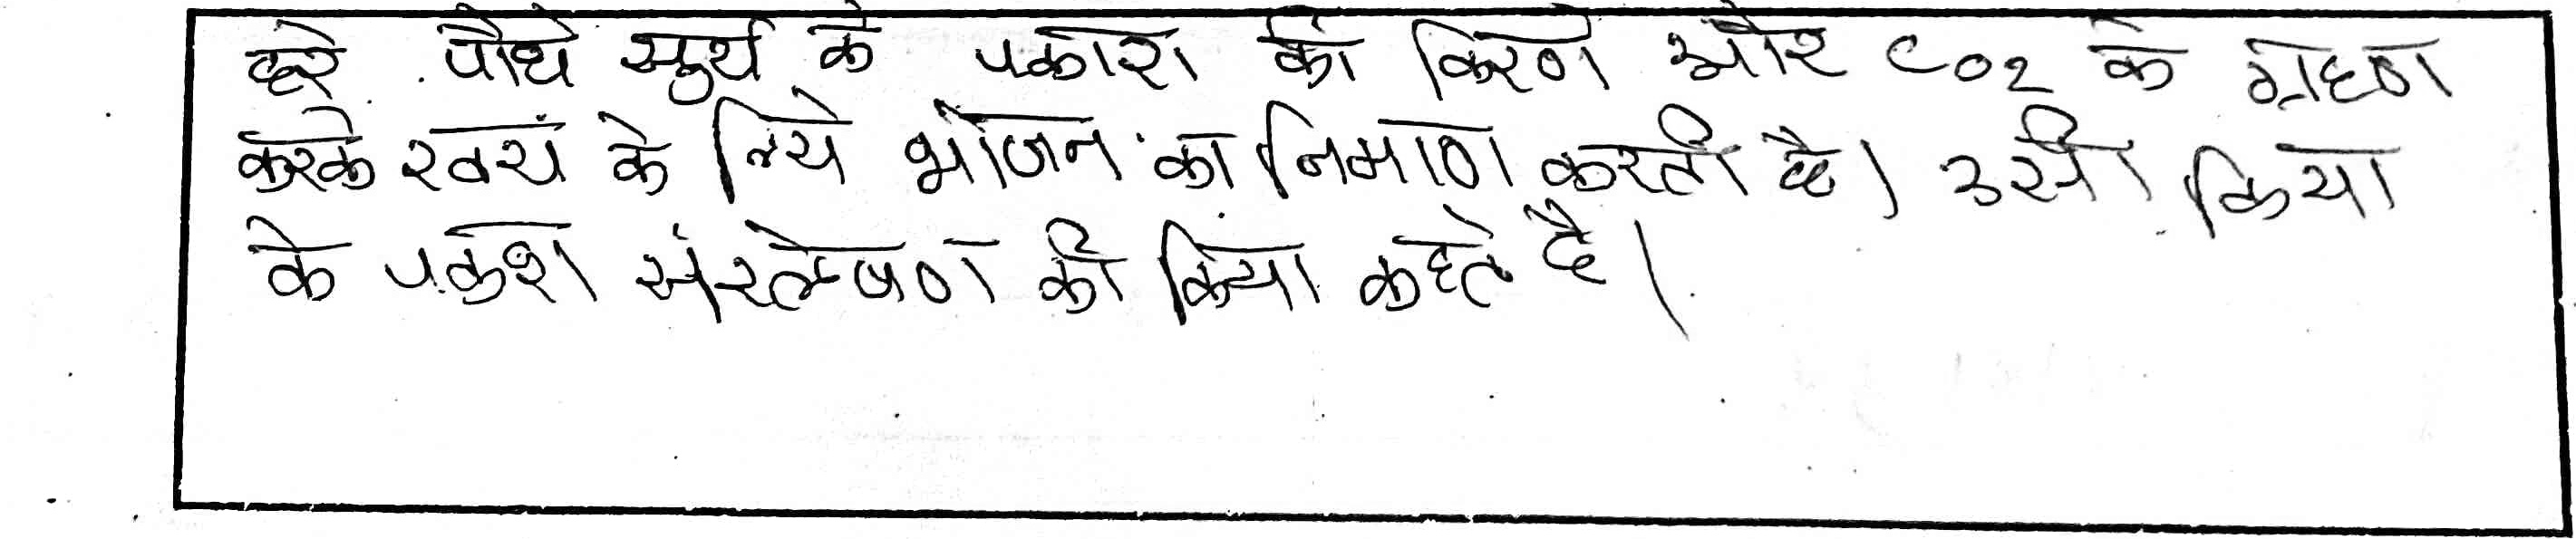 हरे पौधे सुर्य के पकाश की किरण और CO2 के ग्रहण
करके स्वयं के लिये भोजन का निमाण करती है। उसी किया
के पकुश संश्लेषण की किया कहते है।